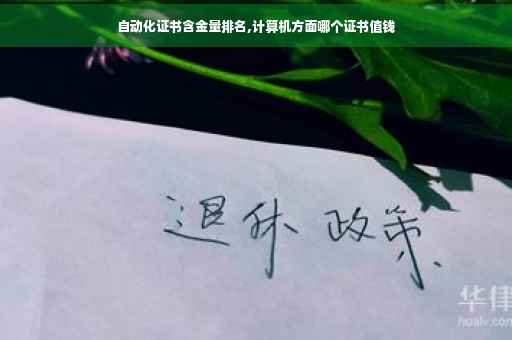 自动化证书含金量排名,计算机方面哪个证书值钱
退休政策
华律
hualv.com